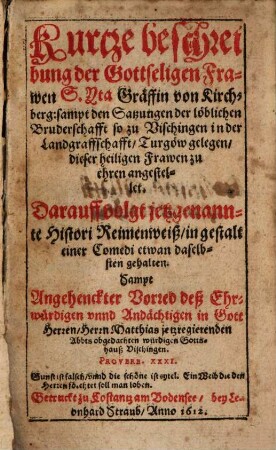 Kurtze beschrei
bung der Gottseligen Fra-
wen S. Yta Gräffin von Kirch-
berg: sampt den Satzungen der löblichen
Bruderschafft so zu Vischingen in der
Landgraffschafft / Turgöw gelegen /
dieser heiligen Frawen zu
ehren angestel-
let.
Darauff volgt jetzgenann-
te Histori Reimenweiß / in gestalt
einer Comedi etwan daselb-
sten gehalten.
Sampt
Angehenckter Vorred deß Ehr-
würdigen vnnd Andächtigen in Gott
Herren / Herrn Matthias jetzregierenden
Abbts obgedachten würdigen Gotts-
hauß Vischingen.
PROVERB. XXXI.
Gunst ist falsch / vnnd die schöne ist eytel. Ein Weib die den
Herren förchtet soll man loben.
Getruckt zu Costantz am Bodensee / bey Le-
onhard Straub / Anno 1612.